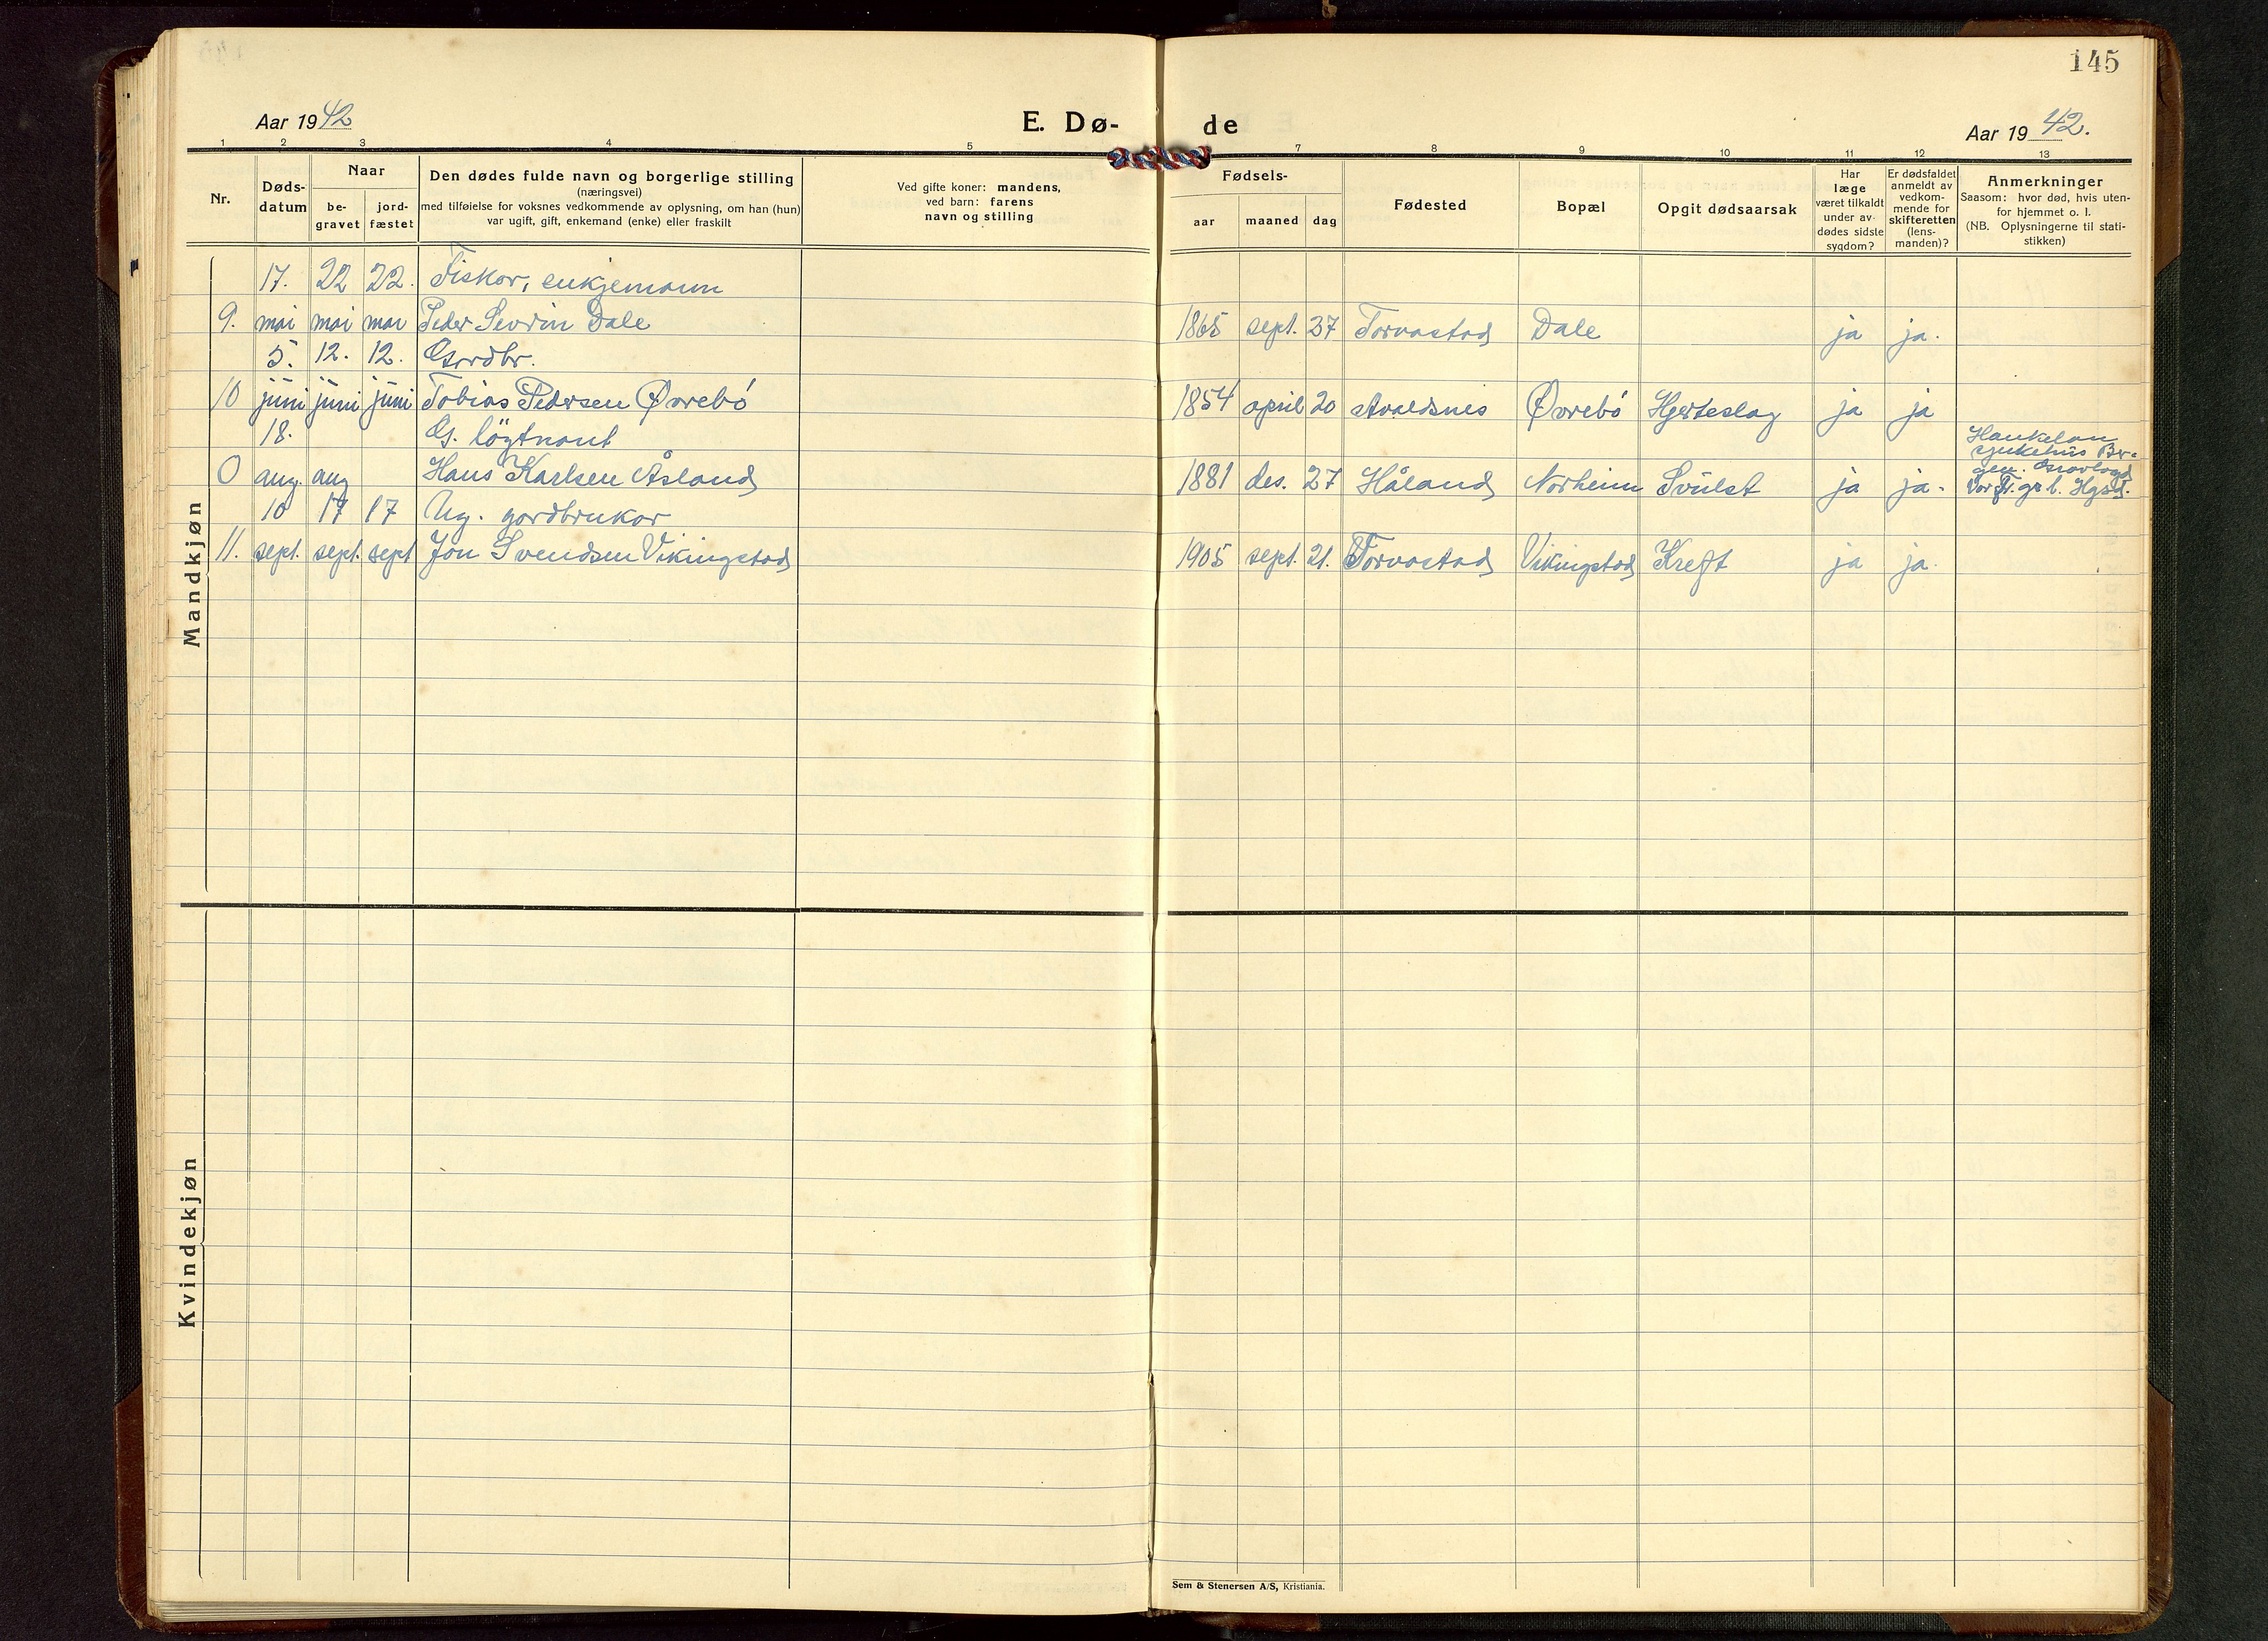 145
Aar 1942
E. Dø- de
Aar 1942.
1 2 3 4 5 7 8 9 10 11 12 13
Nr.
Døds-
datum
Naar
be-
gravet
jord-
fæstet
Den dødes fulde navn og borgerlige stilling
(næringsvei)
med tilføielse for voksnes vedkommende av oplysning, om han (hun)
var ugift, gift, enkemand (enke) eller fraskilt
Ved gifte koner: mandens,
ved barn: farens
navn og stilling
Fødsels-
aar maaned dag
Fødested
Bopæl
Opgit dødsaarsak
Har
læge
været tilkaldt
under av-
dødes sidste
sygdom?
Er dødsfaldet
anmeldt av
vedkom-
mende for
skifteretten
(lens-
manden)?
Anmerkninger
Saasom: hvor død, hvis uten-
for hjemmet o. l.
(NB. Oplysningerne til stati-
stikken)
Mandkjøn
17. 22 22. Fisker, enkjemann
9. mai mai mai Peder Sevrin Dale 1865 sept. 27 Torvastad Dale ja ja.
5. 12. 12. Gardbr.
10 juni juni juni Tobias Pedersen Øvrebø 1854 april 20 Avaldsnes Øvrebø Hjerteslag ja ja
18. G. løytnant
0 aug. aug Hans Karlsen Åsland 1881 des. 27 Håland Norheim Svulst ja ja.
Haukeland
sjukehus Ber-
gen. Gravlagd
Vor Fr. gr. l. Hgsd.
10 17 17 Ug. gardbrukar
11. sept. sept. sept Jon Svendsen Vikingstad 1905 sept. 21. Torvastad Vikingstad Kreft ja ja.
Kvindekjøn
Sem & Stenersen A/S, Kristiania.